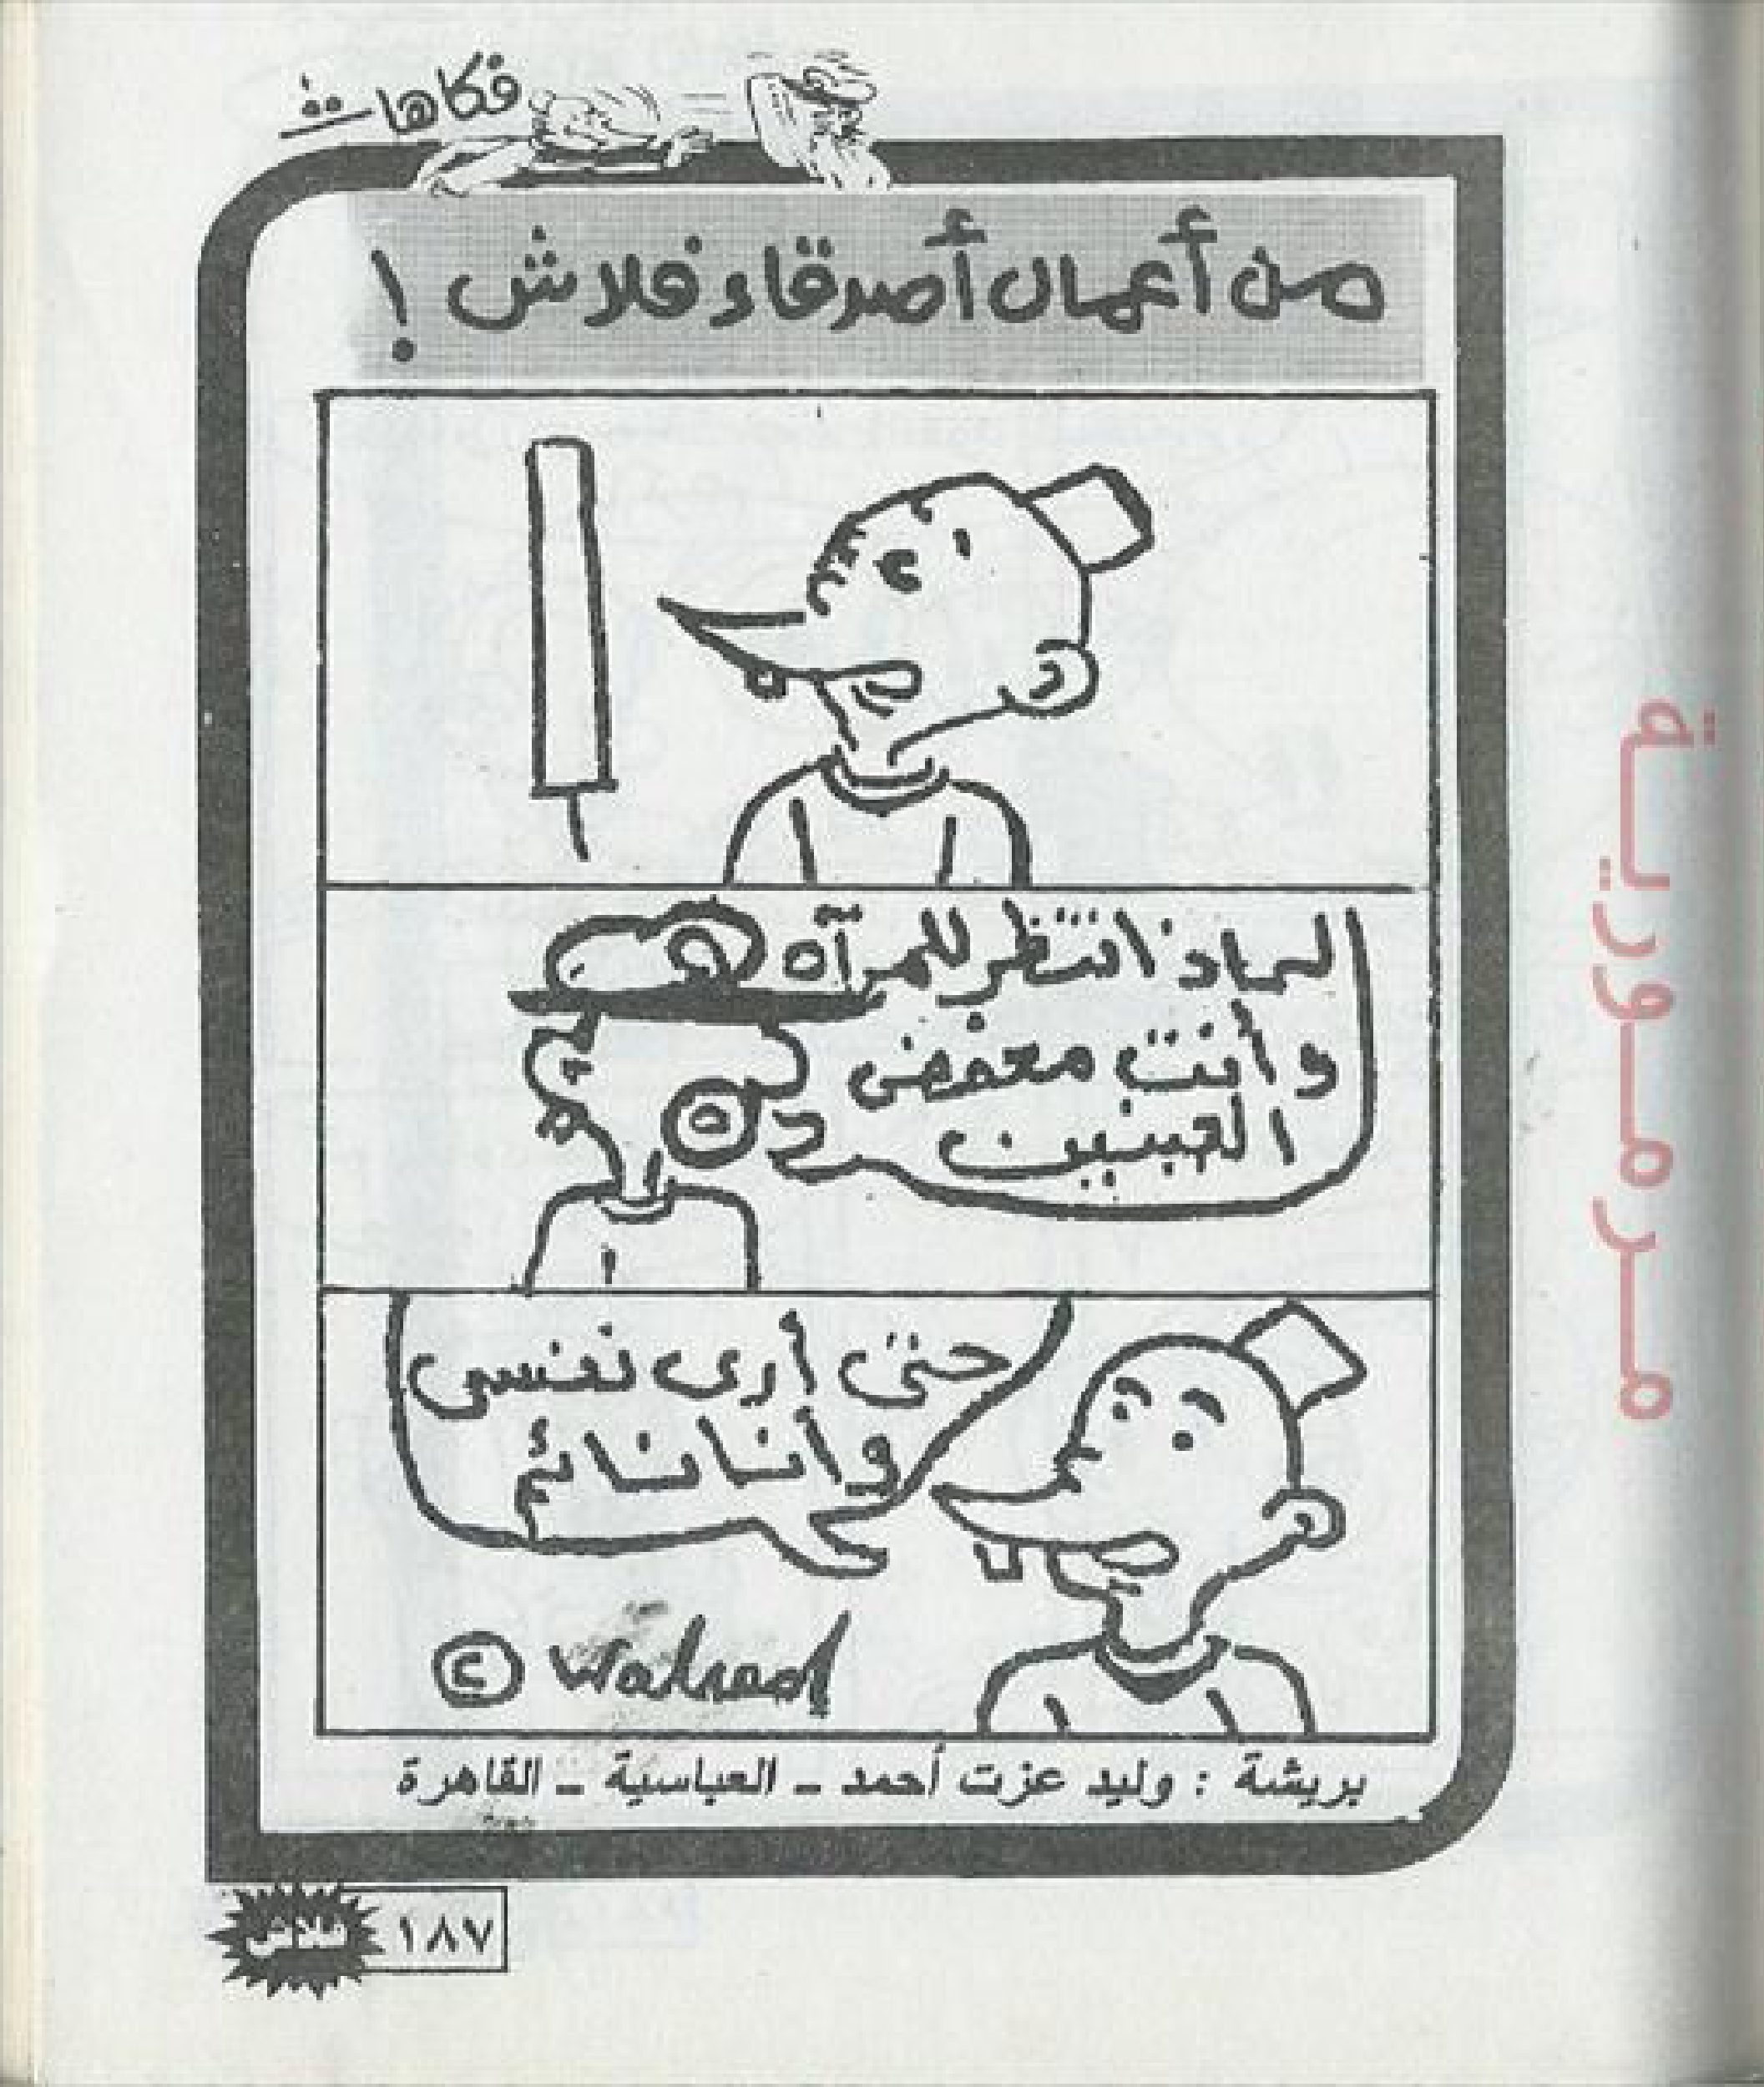 فكاهات
من أعمال أصدقاء فلاش !
لماذا تنظر للمرآة
وأنت مغمض
العينين
حتى أرى نفسي
وأنا نائم
© Waleed
بريشة : وليد عزت أحمد – العباسية – القاهرة
١٨٧
فلاش
مرمورية